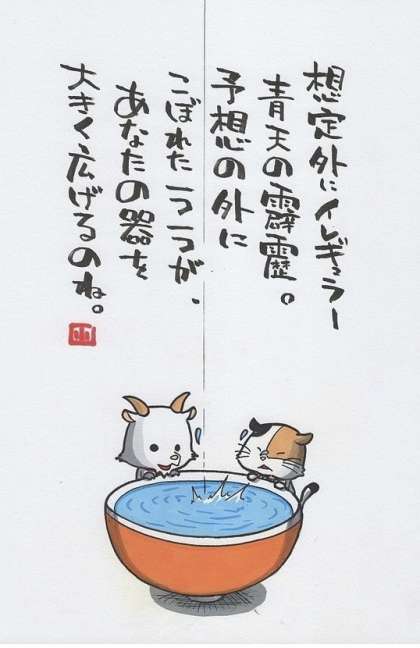 想定外にイレギュラー
青天の霹靂。
予想の外に
こぼれたココが、
あなたの器を
大きく広げるのね。